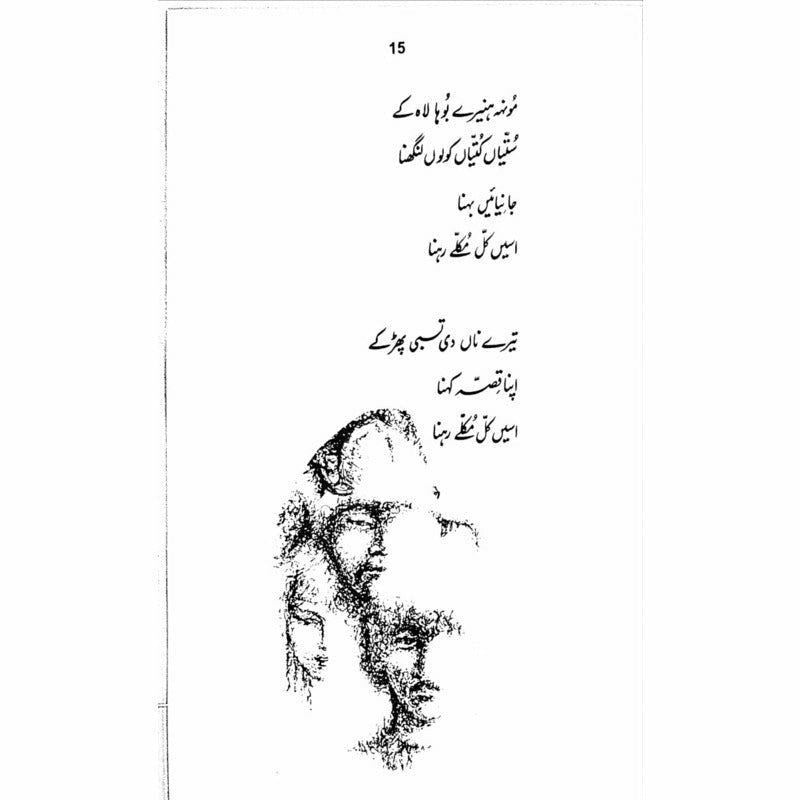 15
مُونہہ ہنیرے بُوہا لاہ کے
سُتّیاں کُتّیاں کولوں لنگھنا
جانیائیں بہنا
اسیں کلّ مُکلّے رہنا
تیرے ناں دی تسبی پھڑ کے
اپنا قِصّہ کہنا
اسیں کلّ مُکلّے رہنا